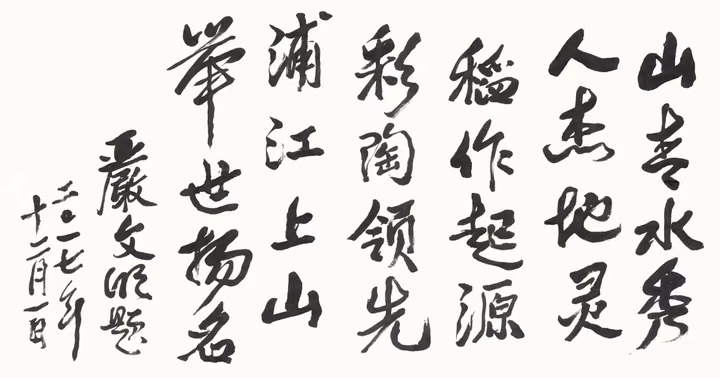 山青水秀
人杰地灵
稻作起源
彩陶领先
浦江上山
举世扬名
严文明题
二〇一七年
十二月一日